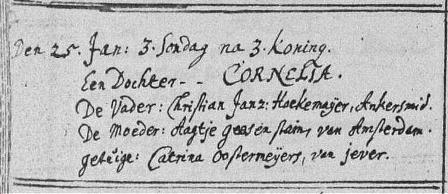 Den 25. Jan: 3. Sondag na 3. Koning.
Een Dochter - - CORNELIA.
De Vader: Christian Janz: Hoekemaijer, Ankersmid.
De Moeder: Aagtje geasenstain, van Amsterdam.
getuige: Catrina Oostermeijers, van jever.